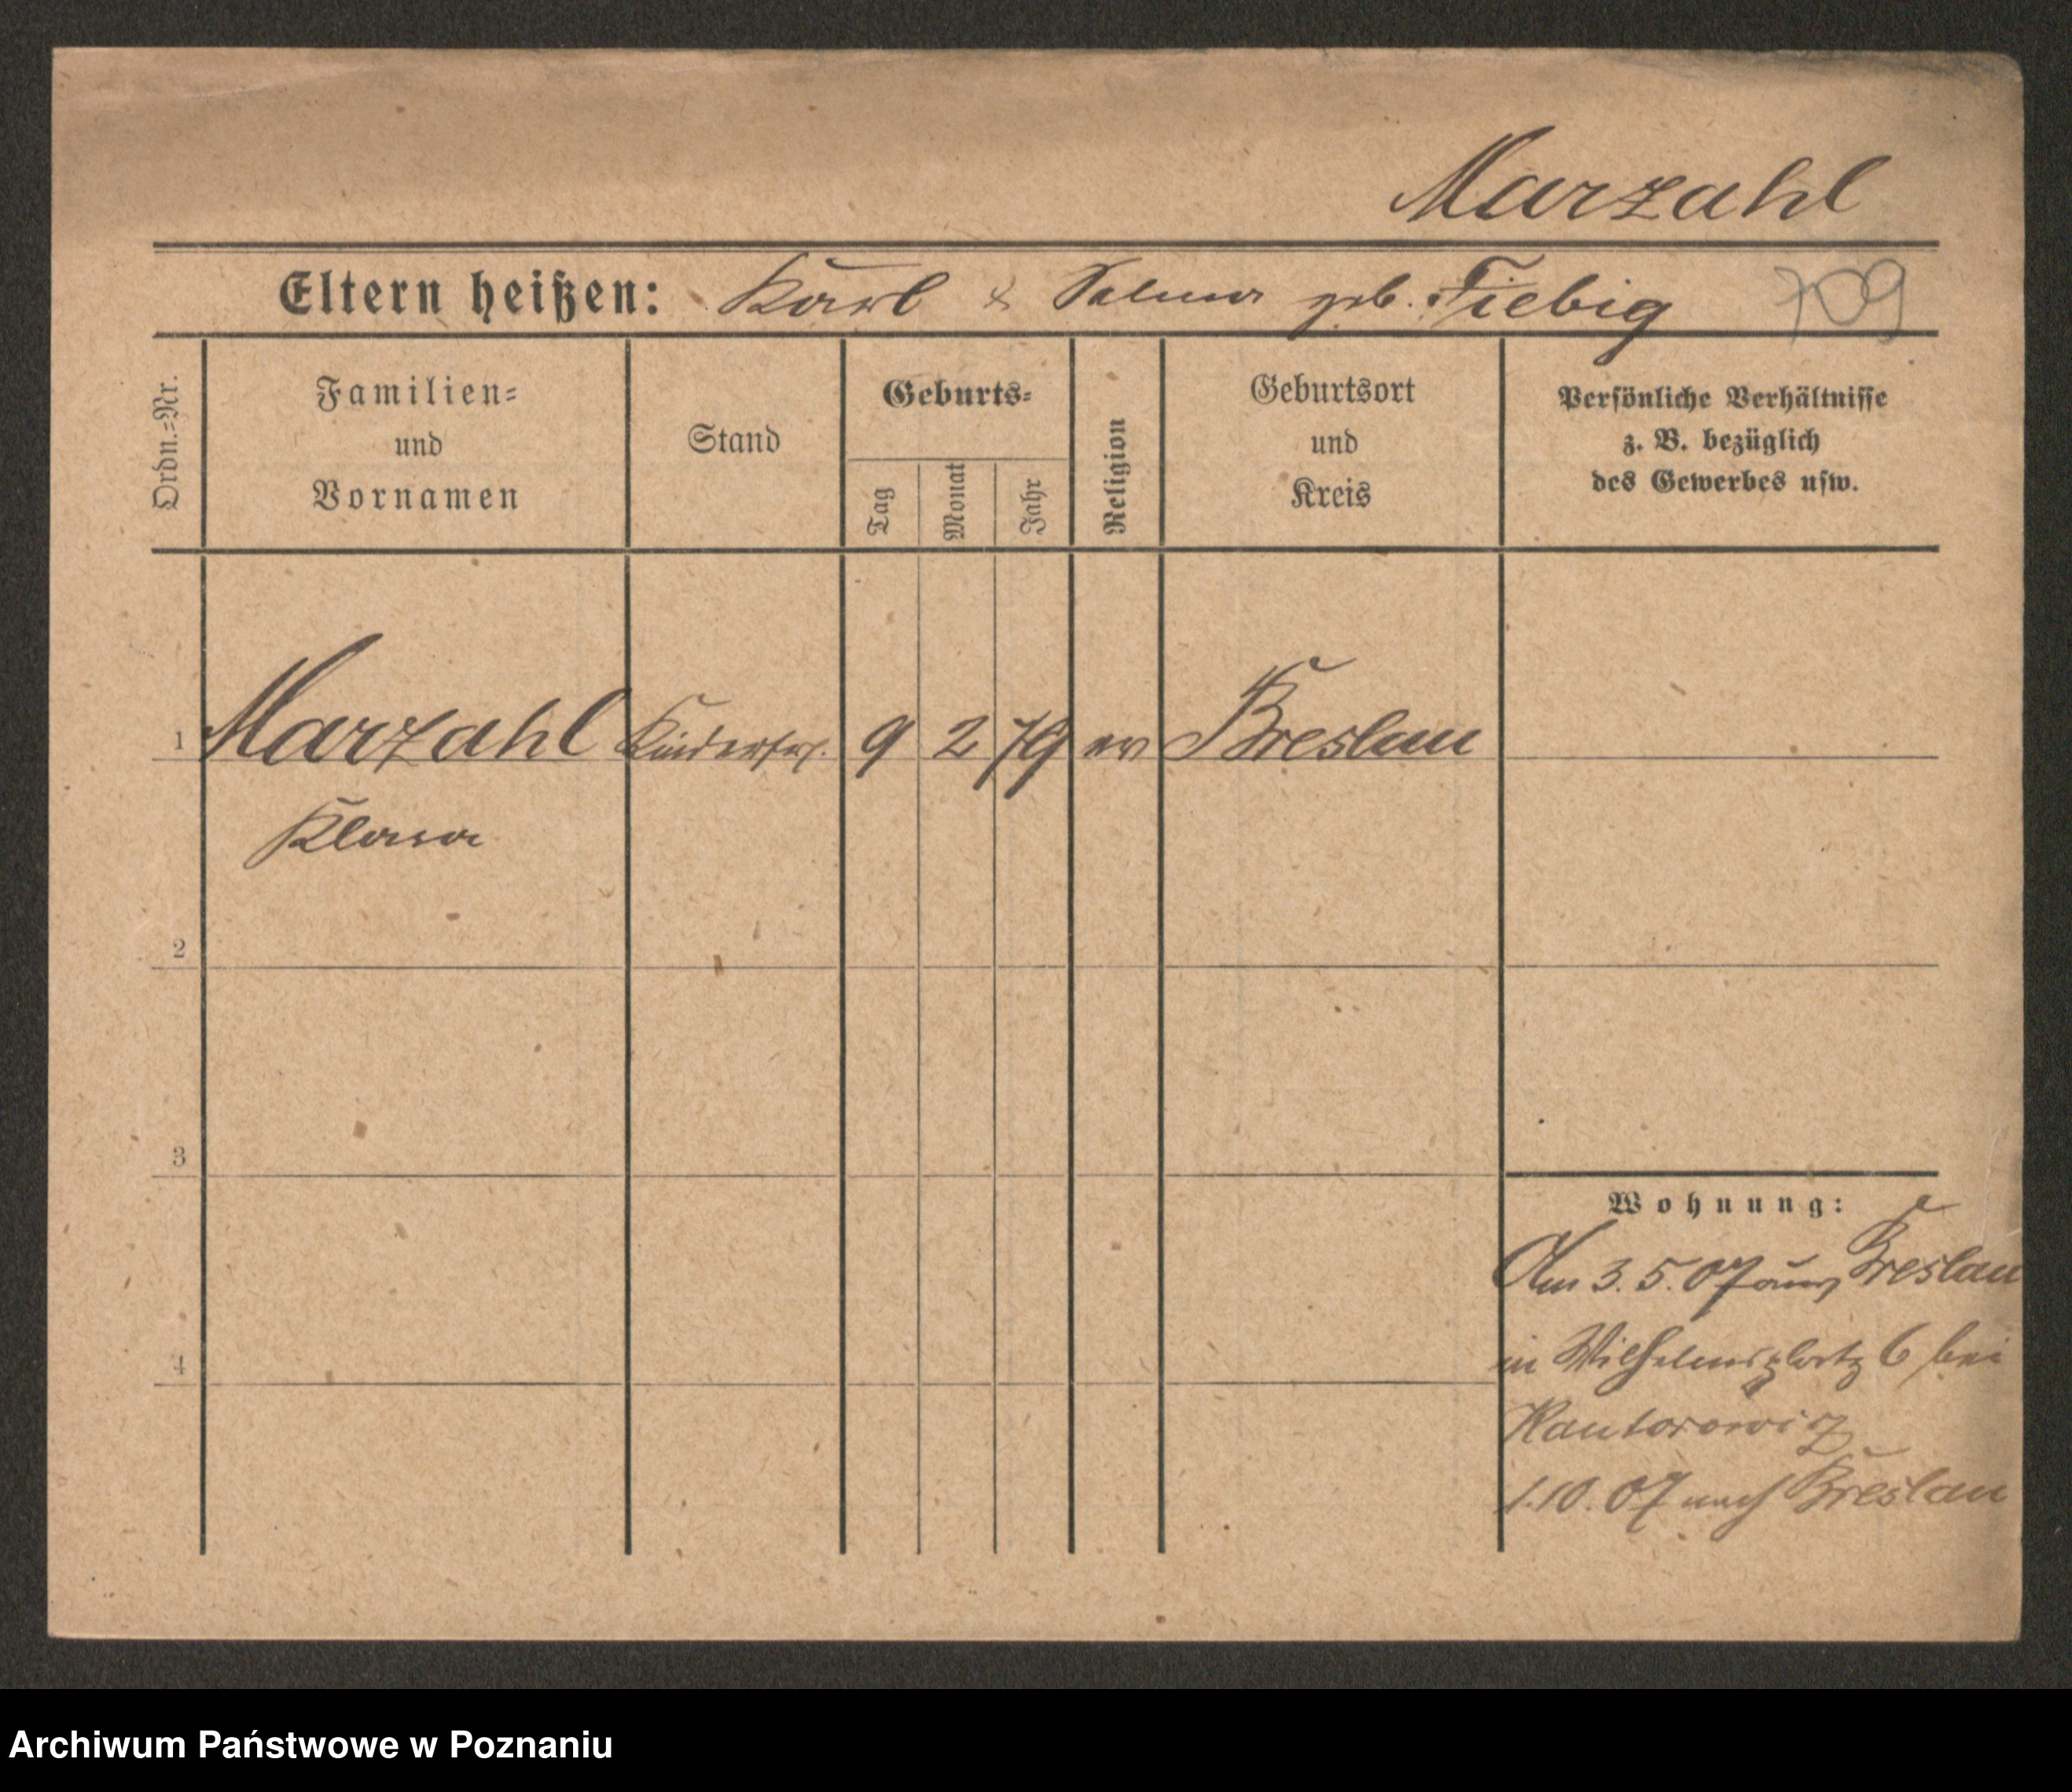 Marzahl
Eltern heißen: Karl & Selma geb. Fiebig 709
Ordn.=Nr.
Familien=
und
Vornamen
Stand
Geburts=
Tag
Monat
Jahr
Religion
Geburtsort
und
Kreis
Persönliche Verhältnisse
z. B. bezüglich
des Gewerbes usw.
1 Marzahl Kinderfrl. 9 2 79 ev Breslau
Klara
2
3
Wohnung:
Am 3. 5. 07 aus Breslau
in Wilhelmsplatz 6 bei
4
Kantorowicz
1. 10. 07 nach Breslau
Archiwum Państwowe w Poznaniu